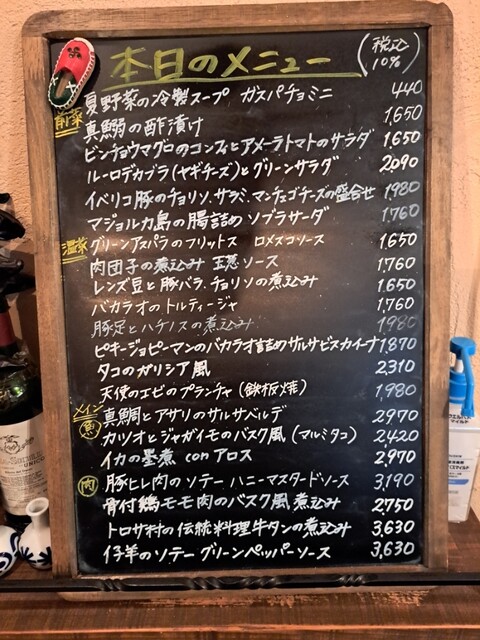 本日のメニュー (税込10%)
前菜
夏野菜の冷製スープ ガスパチョミニ 440
真鰯の酢漬け 1,650
ビンチョウマグロのコンフィとアメーラトマトのサラダ 1,650
ルーロデカブラ(ヤギチーズ)とグリーンサラダ 2,090
イベリコ豚のチョリソ、サラミ、マンチェゴチーズの盛合せ 1,980
マジョルカ島の腸詰め ソブラサーダ 1,760
温菜
グリーンアスパラのフリットス ロメスコソース 1650
肉団子の煮込み 玉葱ソース 1,760
レンズ豆と豚バラ、チョリソの煮込み 1,650
バカラオのトルティージャ 1,760
豚足とハチノスの煮込み 1980
ピキージョピーマンのバカラオ詰めサルサビスカイーナ 1,870
タコのガリシア風 2,310
天使のエビのプランチャ(鉄板焼) 1,980
メイン
魚
真鯛とアサリのサルサベルデ 2970
カツオとジャガイモのバスク風(マルミタコ) 2420
イカの墨煮 con アロス 2,970
肉
豚ヒレ肉のソテー ハニーマスタードソース 3,190
骨付鶏モモ肉のバスク風煮込み 2,750
トロサ村の伝統料理牛タンの煮込み 3,630
仔羊のソテー グリーンペッパーソース 3,630